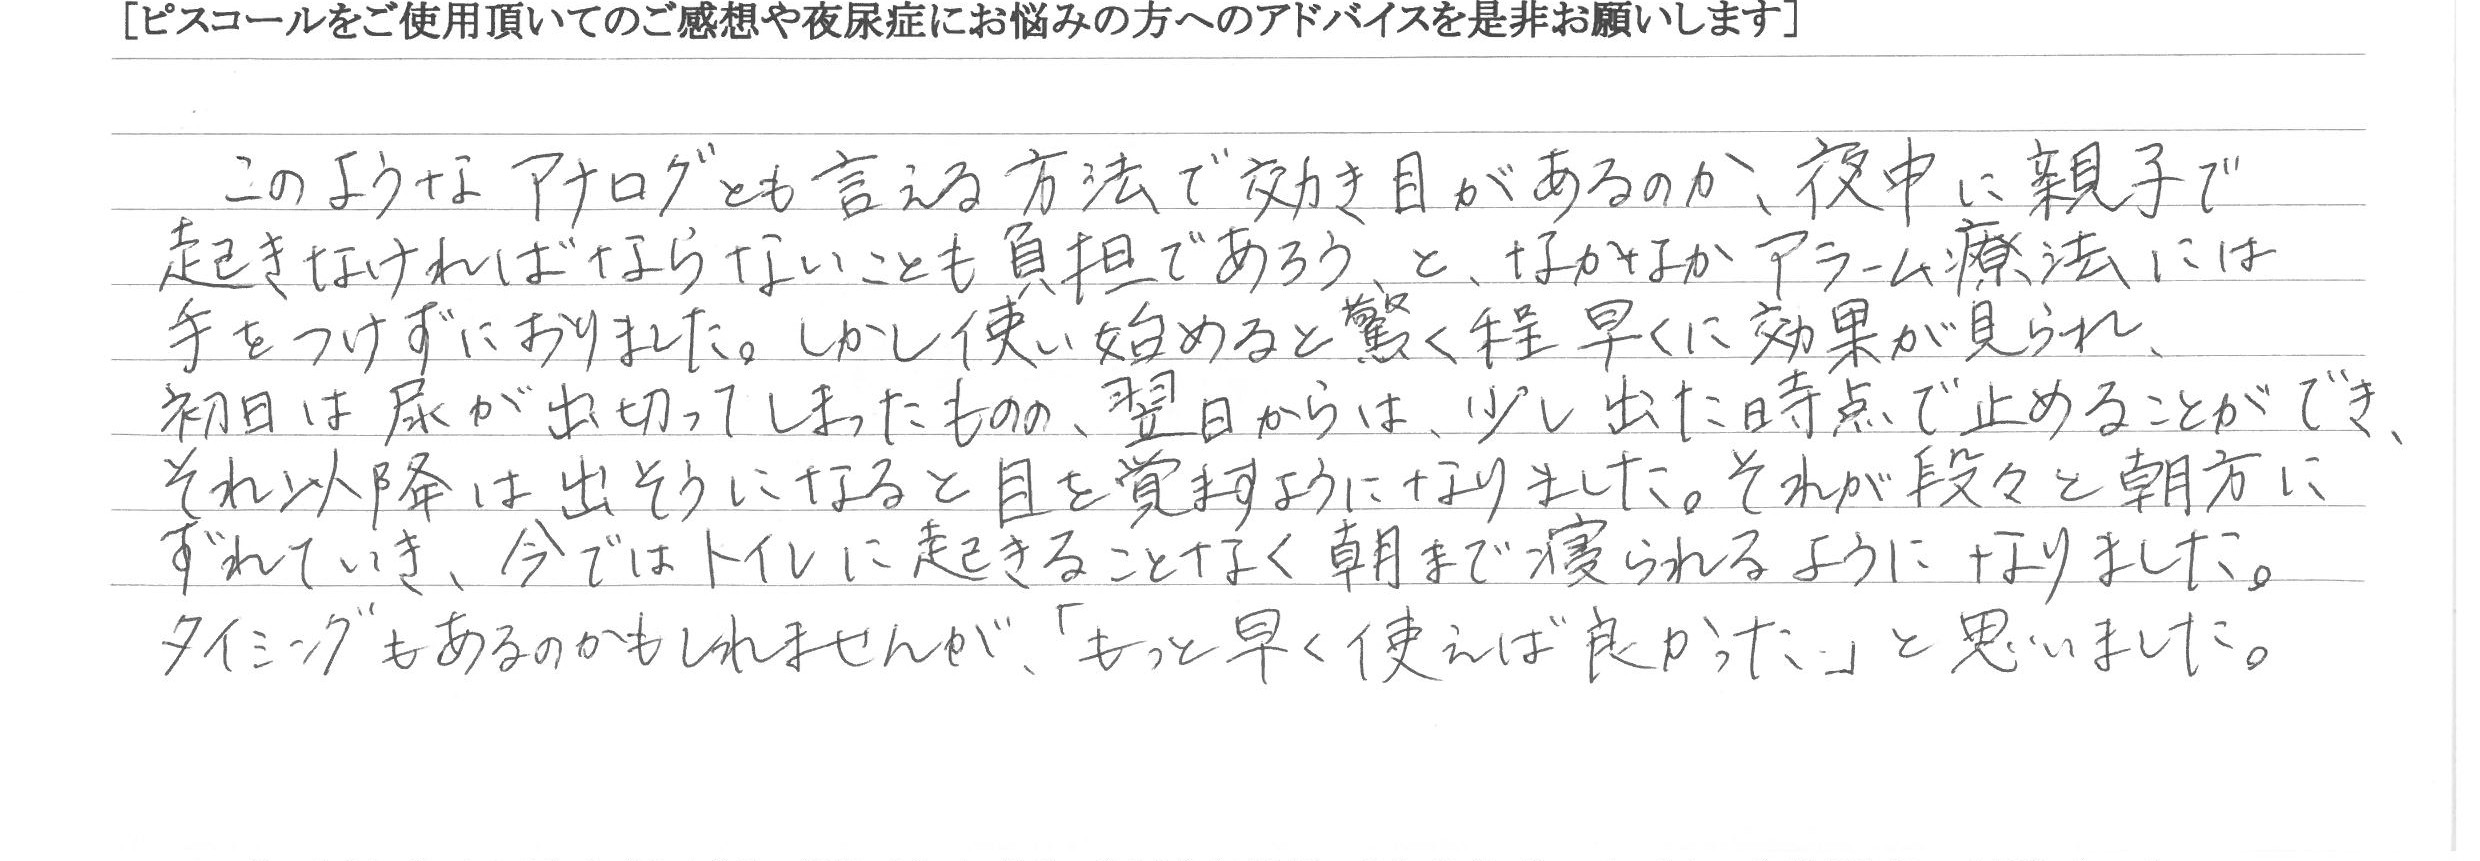 [ピスコールをご使用頂いてのご感想や夜尿症にお悩みの方へのアドバイスを是非お願いします]
このようなアナログとも言える方法で効き目があるのか、夜中に親子で
起きなければならないことも負担であろう、と、なかなかアラーム療法には
手をつけずにおりました。しかし使い始めると驚く程早くに効果が見られ、
初日は尿が出切ってしまったものの、翌日からは、少し出た時点で止めることができ、
それ以降は出そうになると目を覚ますようになりました。それが段々と朝方に
ずれていき、今ではトイレに起きることなく朝まで寝られるようになりました。
タイミングもあるのかもしれませんが、「もっと早く使えば良かった」と思いました。